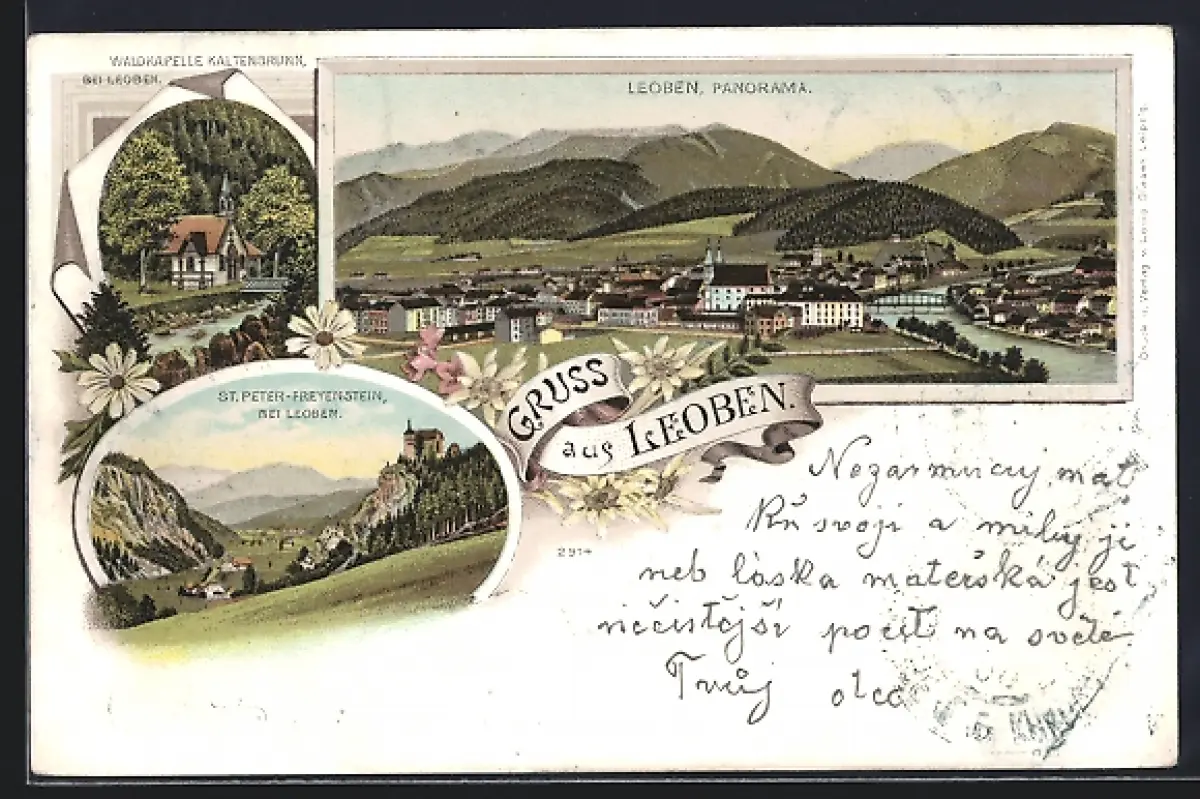 WALDKAPELLE KALTENBRUNN,
BEI LEOBEN.
LEOBEN, PANORAMA.
ST. PETER-FREYENSTEIN,
BEI LEOBEN.
GRUSS
aus LEOBEN.
2914
Nezarmucuj mat
Ků svoji a miluj ji
neb láska mateřská jest
nečistější pocit na světě
Tvůj otec